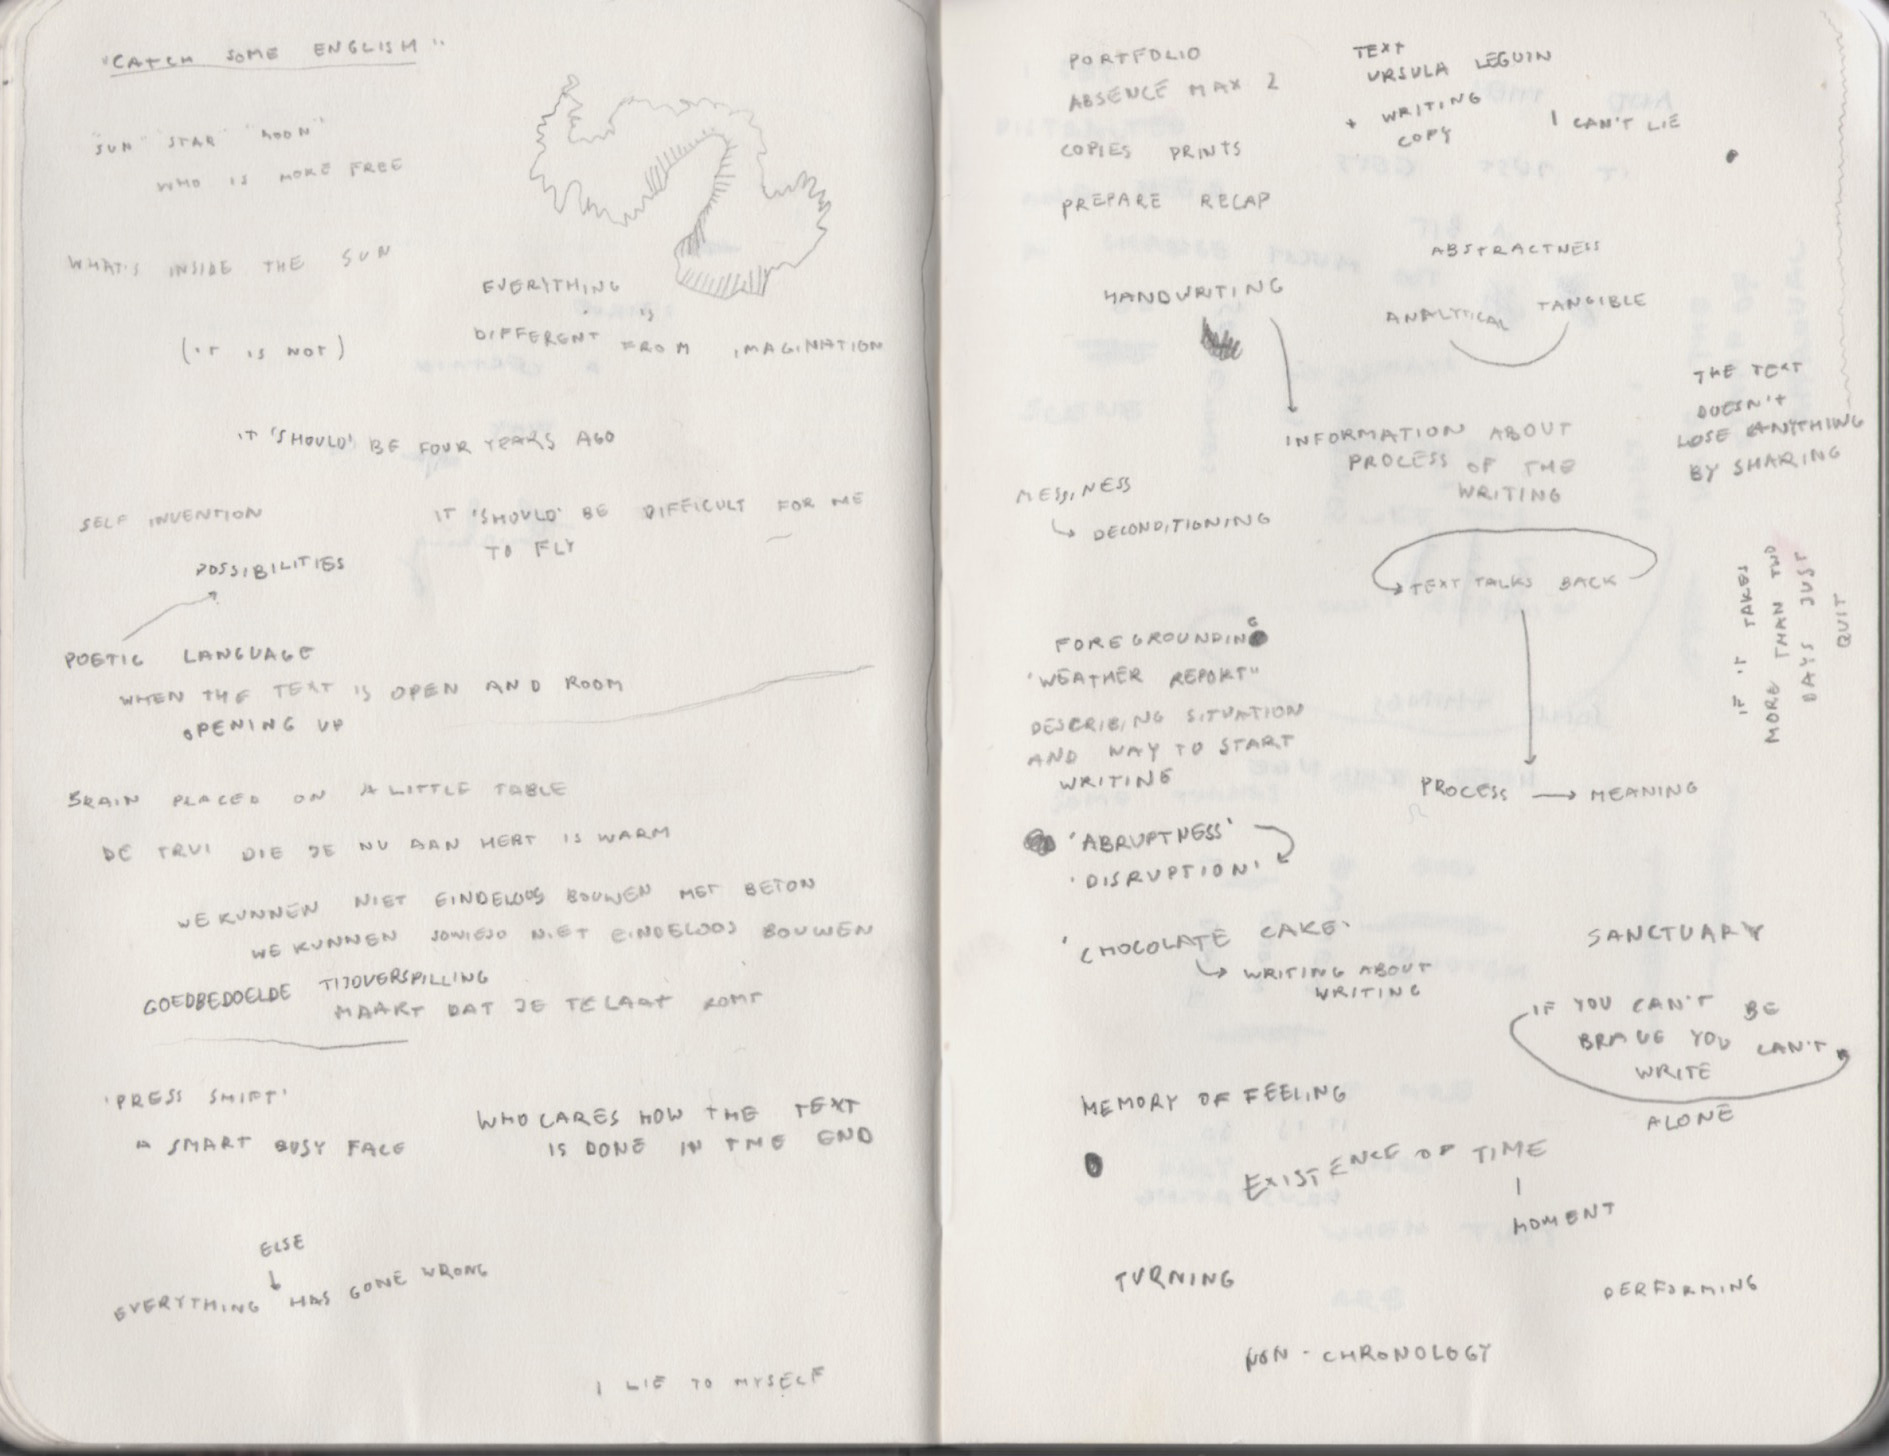 "CATCH SOME ENGLISH"
"SUN" "STAR" "MOON"
WHO IS MORE FREE
WHAT'S INSIDE THE SUN
EVERYTHING
IS
DIFFERENT FROM IMAGINATION
(IT IS NOT)
IT 'SHOULD' BE FOUR YEARS AGO
SELF INVENTION
IT 'SHOULD' BE DIFFICULT FOR ME
TO FLY
POSSIBILITIES
POETIC LANGUAGE
WHEN THE TEXT IS OPEN AND ROOM
OPENING UP
BRAIN PLACED ON A LITTLE TABLE
DE TRUI DIE JE NU AAN HEBT IS WARM
WE KUNNEN NIET EINDELOOS BOUWEN MET BETON
WE KUNNEN SOWIESO NIET EINDELOOS BOUWEN
GOEDBEDOELDE TIJDVERSPILLING
MAAKT DAT JE TE LAAT KOMT
'PRESS SHIFT'
A SMART BUSY FACE
WHO CARES HOW THE TEXT
IS DONE IN THE END
ELSE
EVERYTHING HAS GONE WRONG
I LIE TO MYSELF
PORTFOLIO
ABSENCE MAX 2
COPIES PRINTS
PREPARE RECAP
TEXT
URSULA LEGUIN
+ WRITING
COPY
I CAN'T LIE
ABSTRACTNESS
HANDWRITING
ANALYTICAL TANGIBLE
THE TEXT
DOESN'T
LOSE ANYTHING
BY SHARING
INFORMATION ABOUT
PROCESS OF THE
WRITING
MESSINESS
DECONDITIONING
TEXT TALKS BACK
IF IT TAKES
MORE THAN TWO
DAYS JUST
QUIT
FOREGROUNDING
"WEATHER REPORT"
DESCRIBING SITUATION
AND WAY TO START
WRITING
PROCESS → MEANING
'ABRUPTNESS'
'DISRUPTION'
'CHOCOLATE CAKE'
WRITING ABOUT
WRITING
SANCTUARY
IF YOU CAN'T BE
BRAVE YOU CAN'T
WRITE
ALONE
MEMORY OF FEELING
EXISTENCE OF TIME
MOMENT
TURNING
PERFORMING
NON-CHRONOLOGY